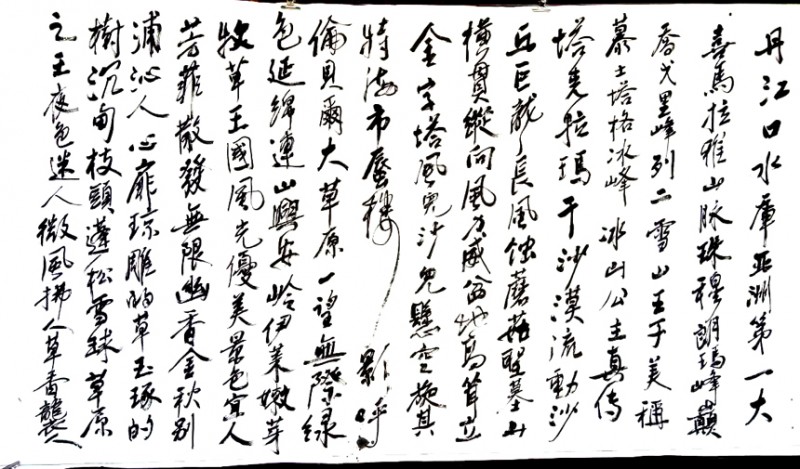 丹江口水庫亞洲第一大
喜馬拉雅山脉珠穆朗瑪峰巔
喬戈里峰列二雪山王子美稱
慕士塔格冰峰冰山公主真傳
塔克拉瑪干沙漠流動沙
丘巨龍長風蝕蘑菇墓土山
橫貫縱向風力威盆地高聳立
金字塔風兒沙兒懸空旋其
特海市蜃樓影呼
倫貝爾大草原一望無際绿
色延綿連山興安岭伊萊嫩芽
牧草王國風光優美景色宜人
芳菲散發無限幽香金秋別
浦沁人心扉琼雕的草玉琢的
樹沉甸枝頭蓬松雪球草原
之王夜色迷人微風拂人草香襲人